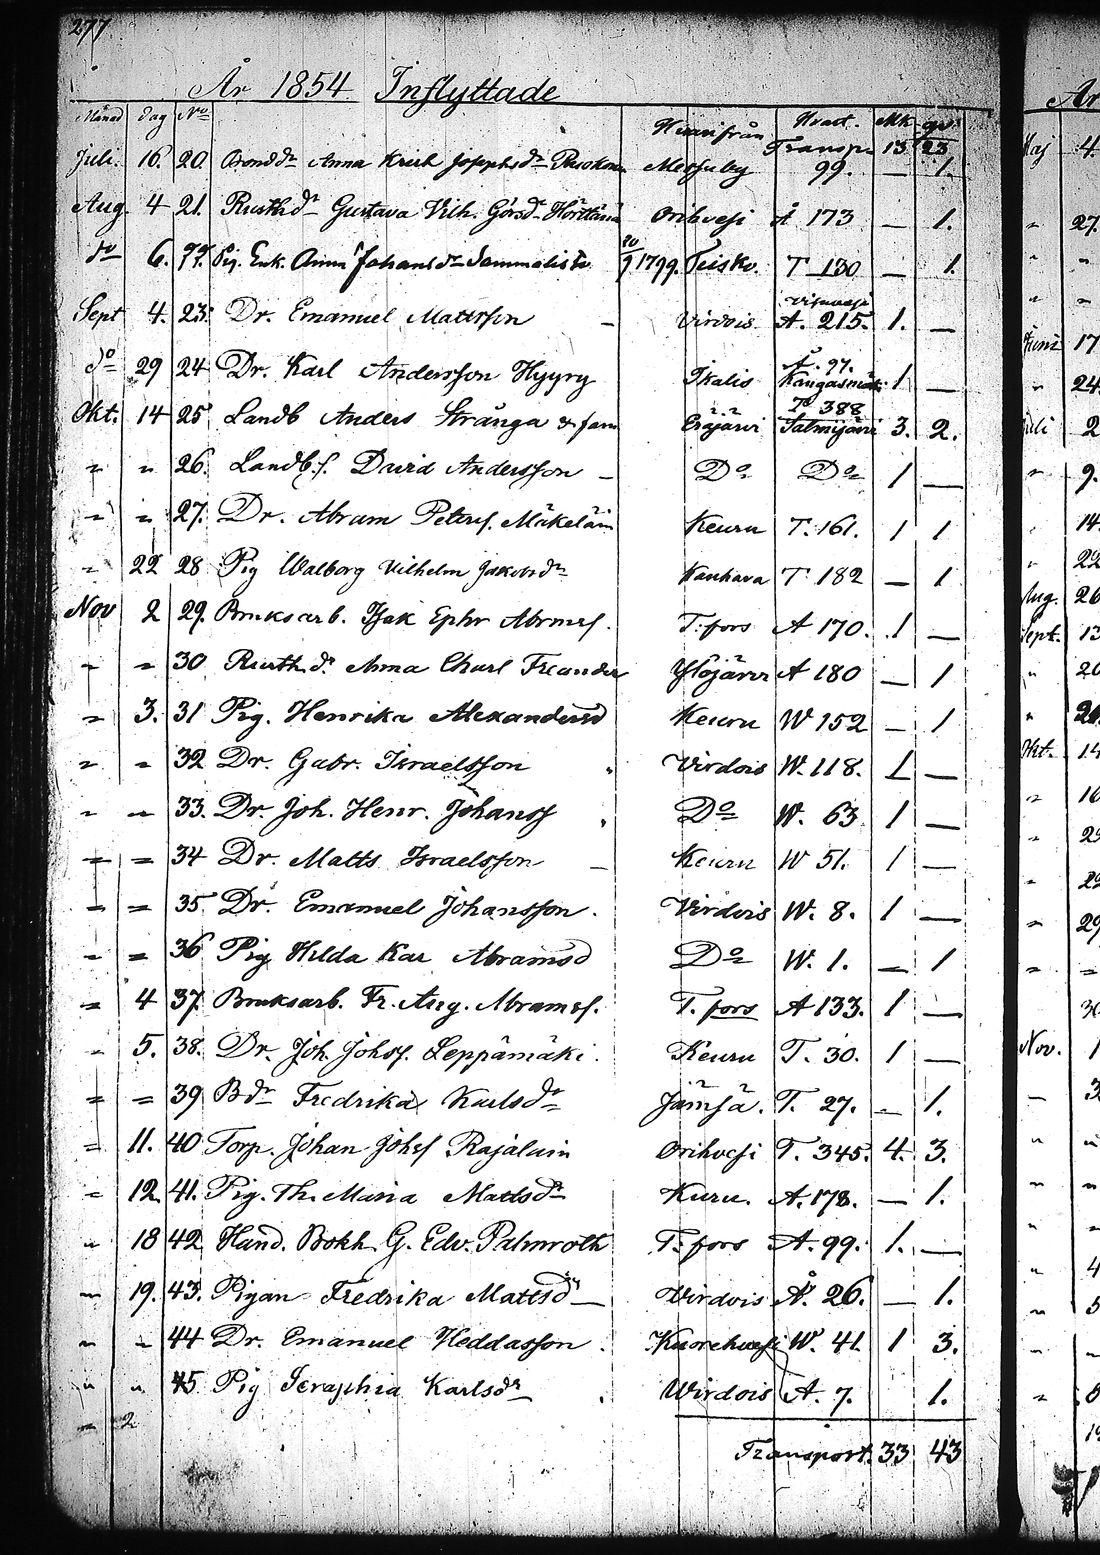 277
År 1854 Inflyttade
Månad dag No Hvarifrån Hvart. Mk. qv.
Transp. 13 23
Juli. 16. 20. Bonddr Anna Krist Josephsdr 99. — 1.
Aug. 4 21. Rusthdr Gustava Vilh. Görsdr Orihvesi Å 173 — 1.
do 6. 22. Pig. Erik. Anna Johansdr 20/9 1799. Teisko. T 130 — 1.
Sept 4. 23. Dr. Emanuel Mattsson — Virdois A. 215. 1. —
do 29 24 Dr. Karl Andersson Hyyry Ikalis Å. 97. 1 —
Okt. 14 25 Landb Anders Strånga & fam Eräjärvi To 388 Salmijärvi 3. 2.
" " 26. Landb.s. David Andersson — Do Do 1 —
" " 27. Dr. Abram Petersf. Mäkeläin Keuru T. 161. 1 1
" 22 28 Pig Walborg Vilhelm Jakobsdr Kauhava T 182 — 1
Nov 2 29. Bruksarb. Isak Ephr Abramsf. T:fors A 170. 1 —
" " 30 Rusth.dr Anna Charl Freander Ylöjärvi A 180 — 1
" 3. 31 Pig. Henrika Alexandersd Keuru W 152 — 1
" " 32 Dr. Gabr. Israelsson Virdois W. 118. 1 —
" " 33. Dr. Joh. Henr. Johansf Do W. 63 1 —
" = 34 Dr. Matts Israelsson — Keuru W 51. 1 —
" = 35 Dr. Emanuel Johansson. Virdois W. 8. 1 —
" = 36 Pig Hilda Kar Abramsd Do W. 1. — 1
" 4 37. Bruksarb. Fr. Aug. Abramsf. T. fors A 133. 1 —
" 5. 38. Dr. Joh. Johsf. Leppämäki. Keuru T. 30. 1 —
" = 39 Bdr Fredrika Karlsdr Jämsä. T. 27. — 1.
" 11. 40 Torp. Johan Johsf Rajalain Orihvesi T. 345. 4. 3.
" 12. 41. Pig. Th. Maria Mattsdr Kuru. A. 178. — 1.
" 18 42 Hand. Bokh. G. Edv. Palmroth T:fors A. 99. 1. —
" 19. 43. Pigan Fredrika Mattsdr — Virdois Å. 26. — 1.
" " 44 Dr. Emanuel Heddasson. Kuorehvesi W. 41 1 3.
" " 45 Pig Seraphia Karlsdr Wirdois A. 7. 1.
" 2
Transport. 33 43
År
Maj 4.
" 27.
" "
" "
Juni 17
" 24.
Juli 2
" 9.
" 14.
" 22
Aug. 26
Sept. 13
" 20
"
Okt. 14
" 16
"
"
" 29
" =
30
Nov. 1
— 3
" "
" "
"
" 4
" 5
" "
" 8